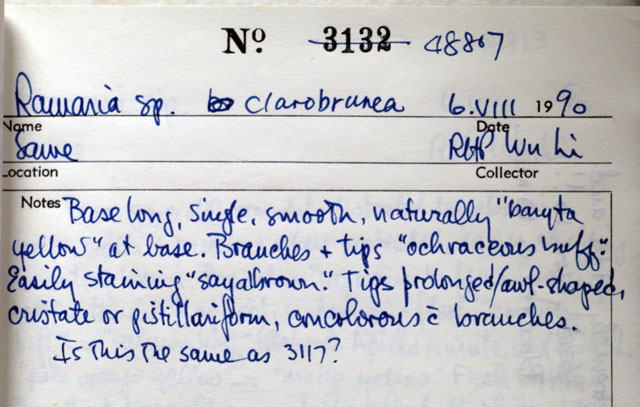 Nº 3132 48807
Ramaria sp. clarobrunea 6.VIII 1990
Name Date
Same RHP Wu Li
Location Collector
Notes Base long, single, smooth, naturally "baryta
yellow" at base. Branches + tips "ochraceous buff."
Easily staining "sayalbrown." Tips prolonged/awl-shaped,
cristate or pistillariform, concolorous c̄ branches.
Is this the same as 3117?